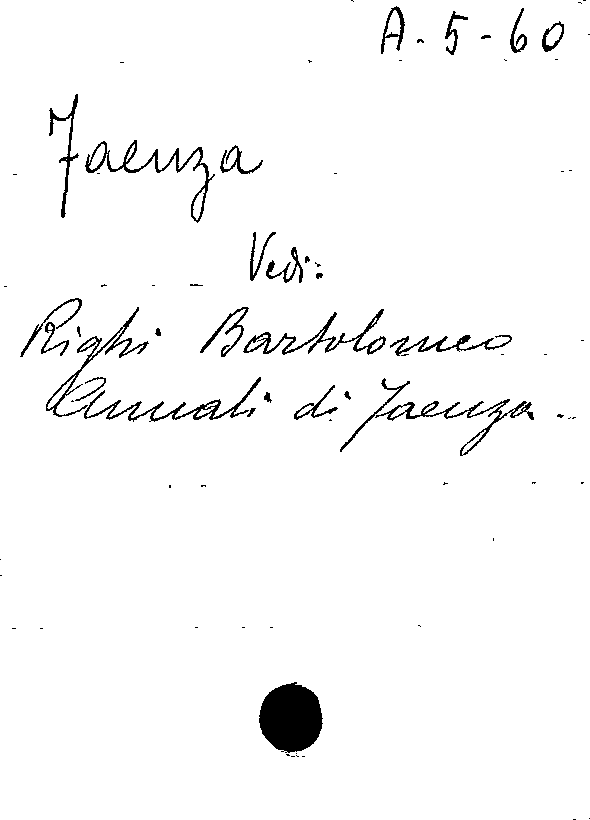 A-5-60
Faenza
Vedi:
Righi Bartolomeo
Annali di Faenza.